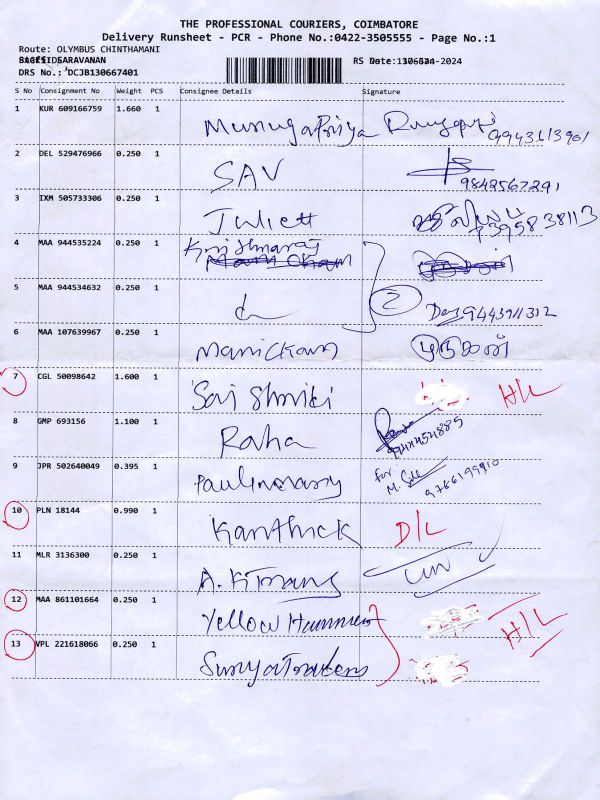 THE PROFESSIONAL COURIERS, COIMBATORE
Delivery Runsheet - PCR - Phone No.:0422-3505555 - Page No.:1
Route: OLYMBUS CHINTHAMANI
SARAVANAN RS
DRS No.: DCJB130667401
S No Consignment No Weight PCS Consignee Details Signature
1 KUR 609166759 1.660 1 Murugapriya 9943613901
2 DEL 529476966 0.250 1 SAV 9842567291
3 IXM 505733306 0.250 1 Juliett
4 MAA 944535224 0.250 1 Krishnaraj
5 MAA 944534632 0.250 1 2
6 MAA 107639967 0.250 1 Manickam முருகன்
7 CGL 50098642 1.600 1 Sai Shruti H/L
8 GMP 693156 1.100 1 Raha
9 JPR 502640049 0.395 1 Paulinmary for
10 PLN 18144 0.990 1 Karthick D/L
11 MLR 3136300 0.250 1
12 MAA 861101664 0.250 1 Yellow Hammer H/L
13 VPL 221618066 0.250 1 Surya Traders